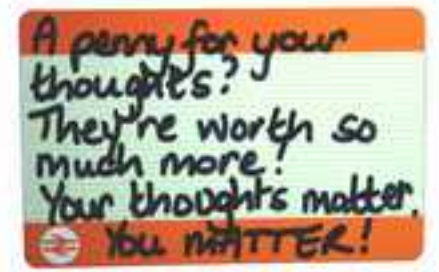 A penny for your
thoughts?
They're worth so
much more!
Your thoughts matter.
YOU MATTER!